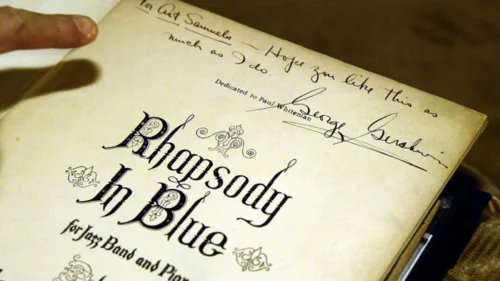 for Art Samuels – Hope you like this as
much as I do.
George Gershwin
Dedicated to Paul Whiteman
Rhapsody
In Blue
for Jazz Band and Piano